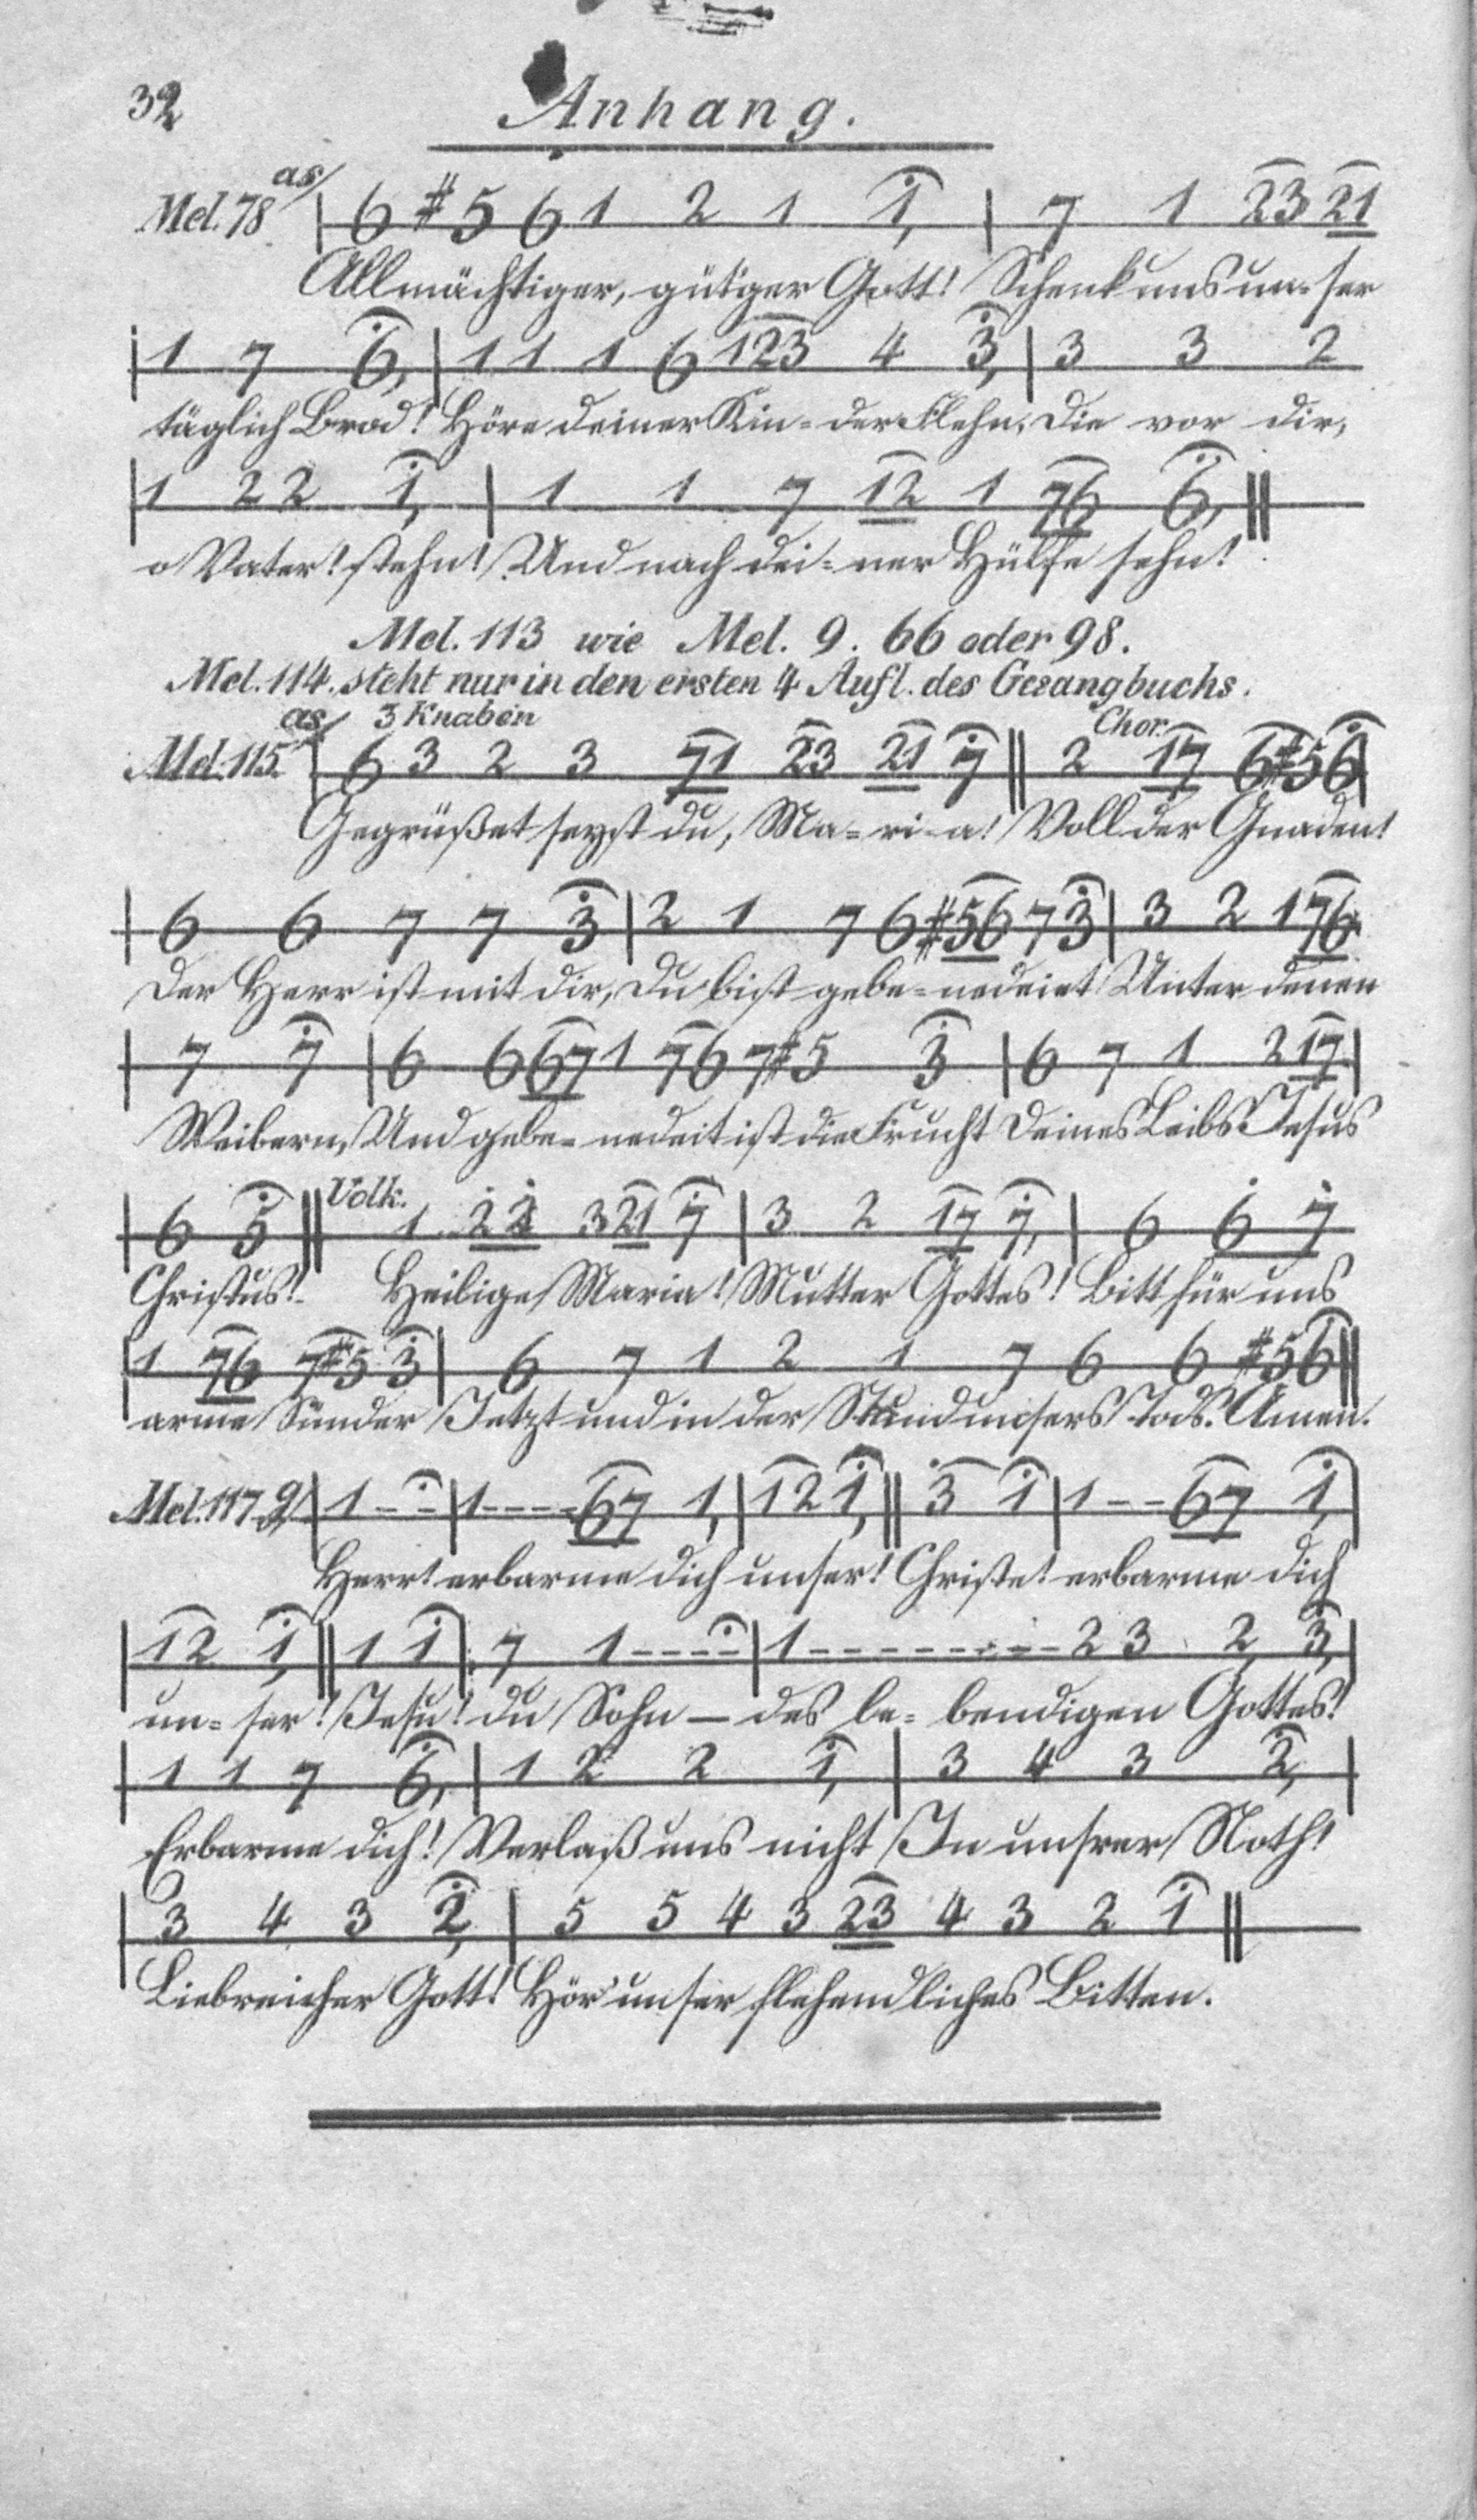 32
Anhang.
as
Mel. 78 | 6 #5 6 1 2 1 1, | 7 1 23 21
Allmächtiger, gütiger Gott! Schenk uns un=ser
| 1 7 6, | 1 1 1 6 123 4 3, | 3 3 2
täglich Brod! Höre deiner Kin=der Flehn, Die vor dir,
| 1 2 2 1, | 1 1 7 12 1 76 6, ||
o Vater! stehn! Und nach dei=ner Hülfe sehn!
Mel. 113 wie Mel. 9. 66 oder 98.
Mel. 114. steht nur in den ersten 4 Aufl. des Gesangbuchs.
as 3 Knaben Chor.
Mel. 115. | 6 3 2 3 71 23 21 7 || 2 17 6 #5 6 |
Gegrüßet seyst du, Ma=ri=a! Voll der Gnaden!
| 6 6 7 7 3 | 2 1 7 6 #56 7 3 | 3 2 1 76
Der Herr ist mit dir, Du bist gebe=nedeiet Unter denen
| 7 7 | 6 6 67 1 76 7 #5 3 | 6 7 1 2 17 |
Weibern, Und gebe=nedeit ist die Frucht Deines Leibs Jesus
| 6 5 || Volk. 1 2 2 3 21 7 | 3 2 17 7, | 6 6 7
Christus! Heilige Maria! Mutter Gottes! Bitt für uns
| 1 76 7 #5 3 | 6 7 1 2 1 7 6 6 #5 6 ||
arme Sünder Jetzt und in der Stund unsers Tods. Amen.
Mel. 117. g | 1 - - | 1 - - - - 67 1, | 12 1, || 3 1 | 1 - - 67 1, |
Herr! erbarme dich unser! Christe! erbarme dich
| 12 1, || 1 1 | 7 1 - - - - | 1 - - - - - - - - - 2 3 2 3, |
un=ser! Jesu! du Sohn — des le=bendigen Gottes!
| 1 1 7 6, | 1 2 2 1, | 3 4 3 2, |
Erbarme dich! Verlaß uns nicht In unsrer Noth!
| 3 4 3 2, | 5 5 4 3 23 4 3 2 1 ||
Liebreicher Gott! Hör unser flehendliches Bitten.